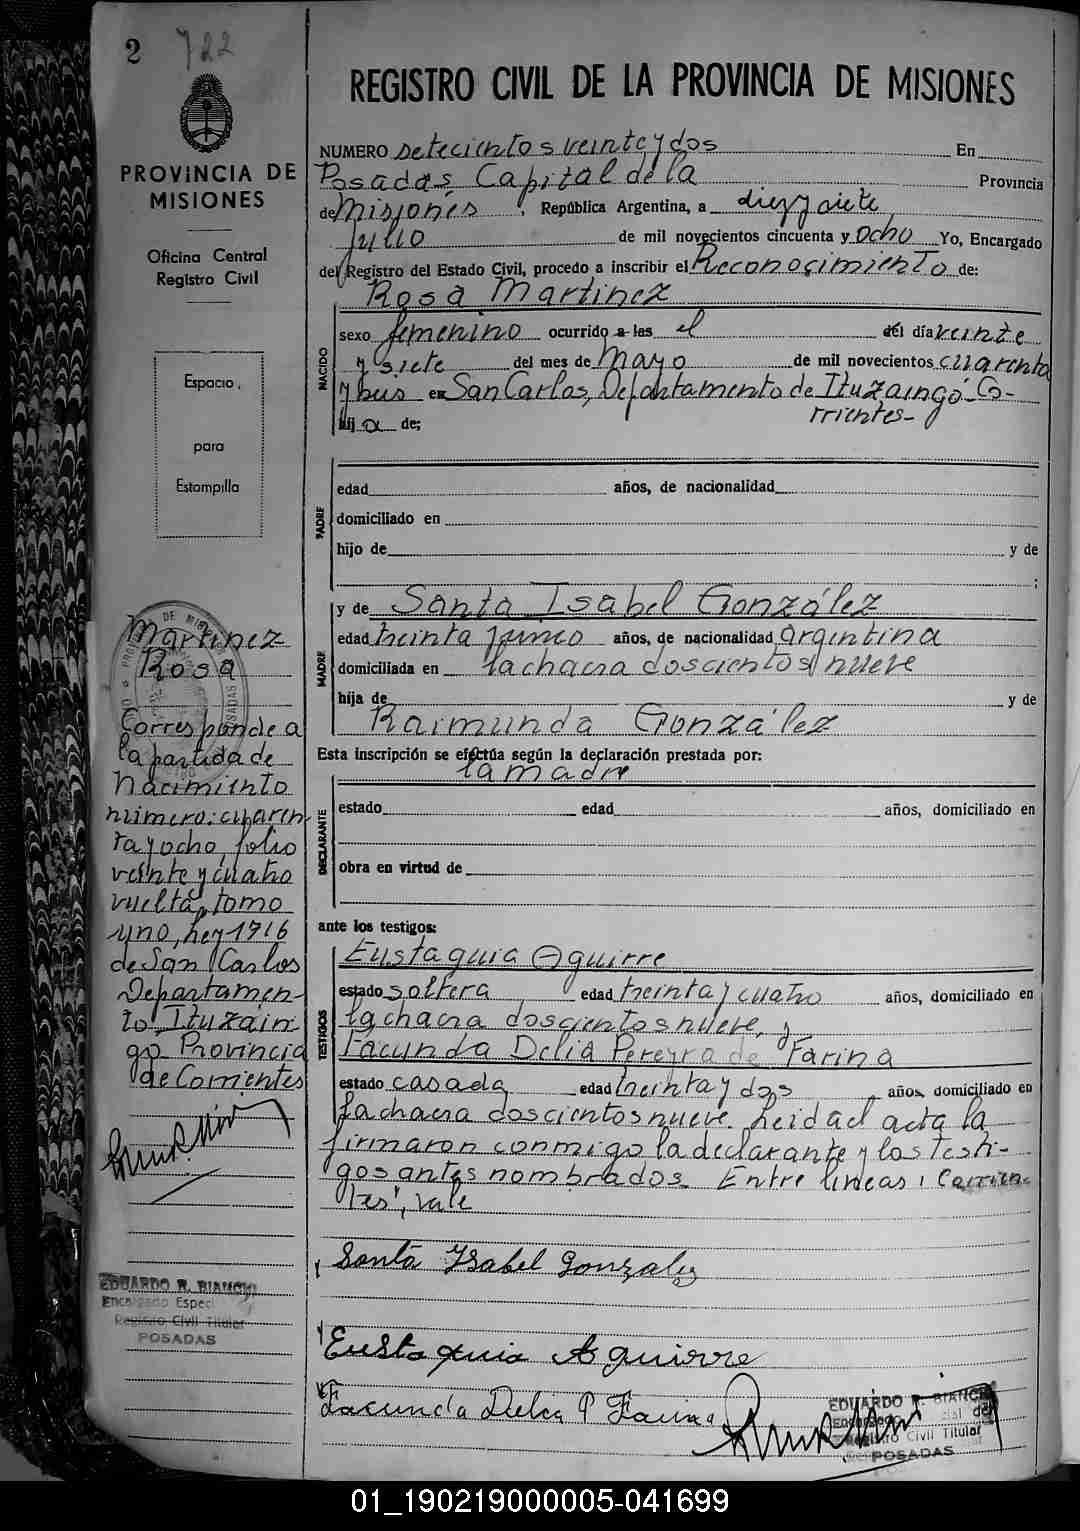 2 722
PROVINCIA DE
MISIONES
Oficina Central
Registro Civil
Espacio
para
Estampilla
Martinez
Rosa
Corresponde a
la partida de
Nacimiento
número: cuaren-
ta y ocho, folio
veinte y cuatro
vuelta, tomo
uno, ley 1716
de San Carlos
Departamen-
to Ituzain
go- Provincia
de Corrientes
EDUARDO R. BIANCHI
Encargado Especial
Registro Civil Titular
POSADAS
REGISTRO CIVIL DE LA PROVINCIA DE MISIONES
NUMERO setecientos veinte y dos En
Posadas, Capital de la Provincia
de Misiones , República Argentina, a diez y siete
Julio de mil novecientos cincuenta y ocho Yo, Encargado
del Registro del Estado Civil, procedo a inscribir el Reconocimiento de:
Rosa Martinez
NACIDO
sexo femenino ocurrido a las el del día veinte
y siete del mes de Mayo de mil novecientos cuarenta
y seis en San Carlos, Departamento de Ituzaingó-Co-
rrientes-
hij a de;
PADRE
edad años, de nacionalidad
domiciliado en
hijo de y de
;
MADRE
y de Santa Isabel González
edad treinta y cinco años, de nacionalidad argentina
domiciliada en la chacra doscientos nueve
hija de y de
Raimunda González
Esta inscripción se efectúa según la declaración prestada por:
la madre
DECLARANTE
estado edad años, domiciliado en
obra en virtud de
ante los testigos:
TESTIGOS
Eustaquia Aguirre
estado soltera edad treinta y cuatro años, domiciliado en
la chacra doscientos nueve, y
Facunda Delia Pereyra de Farina
estado casada edad treinta y dos años, domiciliado en
la chacra doscientos nueve. Leida el acta la
firmaron conmigo la declarante y los testi-
gos antes nombrados. Entre líneas: Corrien-
tes, vale
Santa Ysabel Gonzalez
Eustaquia Aguirre
Facunda Delia P Farina
EDUARDO R. BIANCHI
Encargado Especial del
Registro Civil Titular
POSADAS
01_190219000005-041699